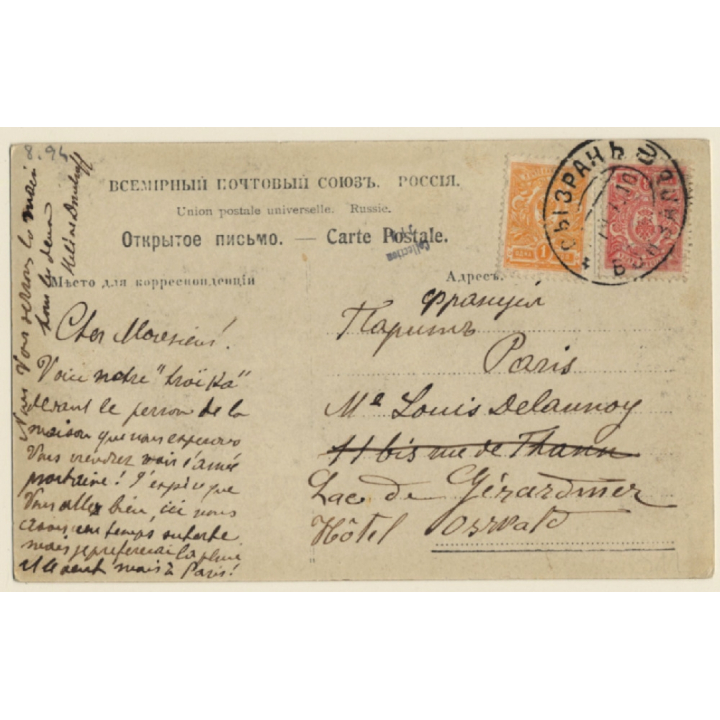 8.94
ВСЕМІРНЫЙ ПОЧТОВЫЙ СОЮЗЪ. РОССІЯ.
Union postale universelle. Russie.
Открытое письмо. — Carte Postale.
Collection
Мѣсто для корреспонденціи
Адресъ.
СЫЗРАНЬ
Франція
Парижъ
Paris
Mr Louis Delaunoy
11 bis rue de Thann
Lac de Gérardmer
Hôtel Osswald
Cher Monsieur!
Voici notre "troïka"
devant le perron de la
maison que nous espérons
Vous viendrez voir l'année
prochaine! J'espère que
Vous allez bien, ici nous
avons un temps superbe
mais je préférerai la pluie
et le vent mais à Paris!
Nous Vous serrons la main
tous les deux